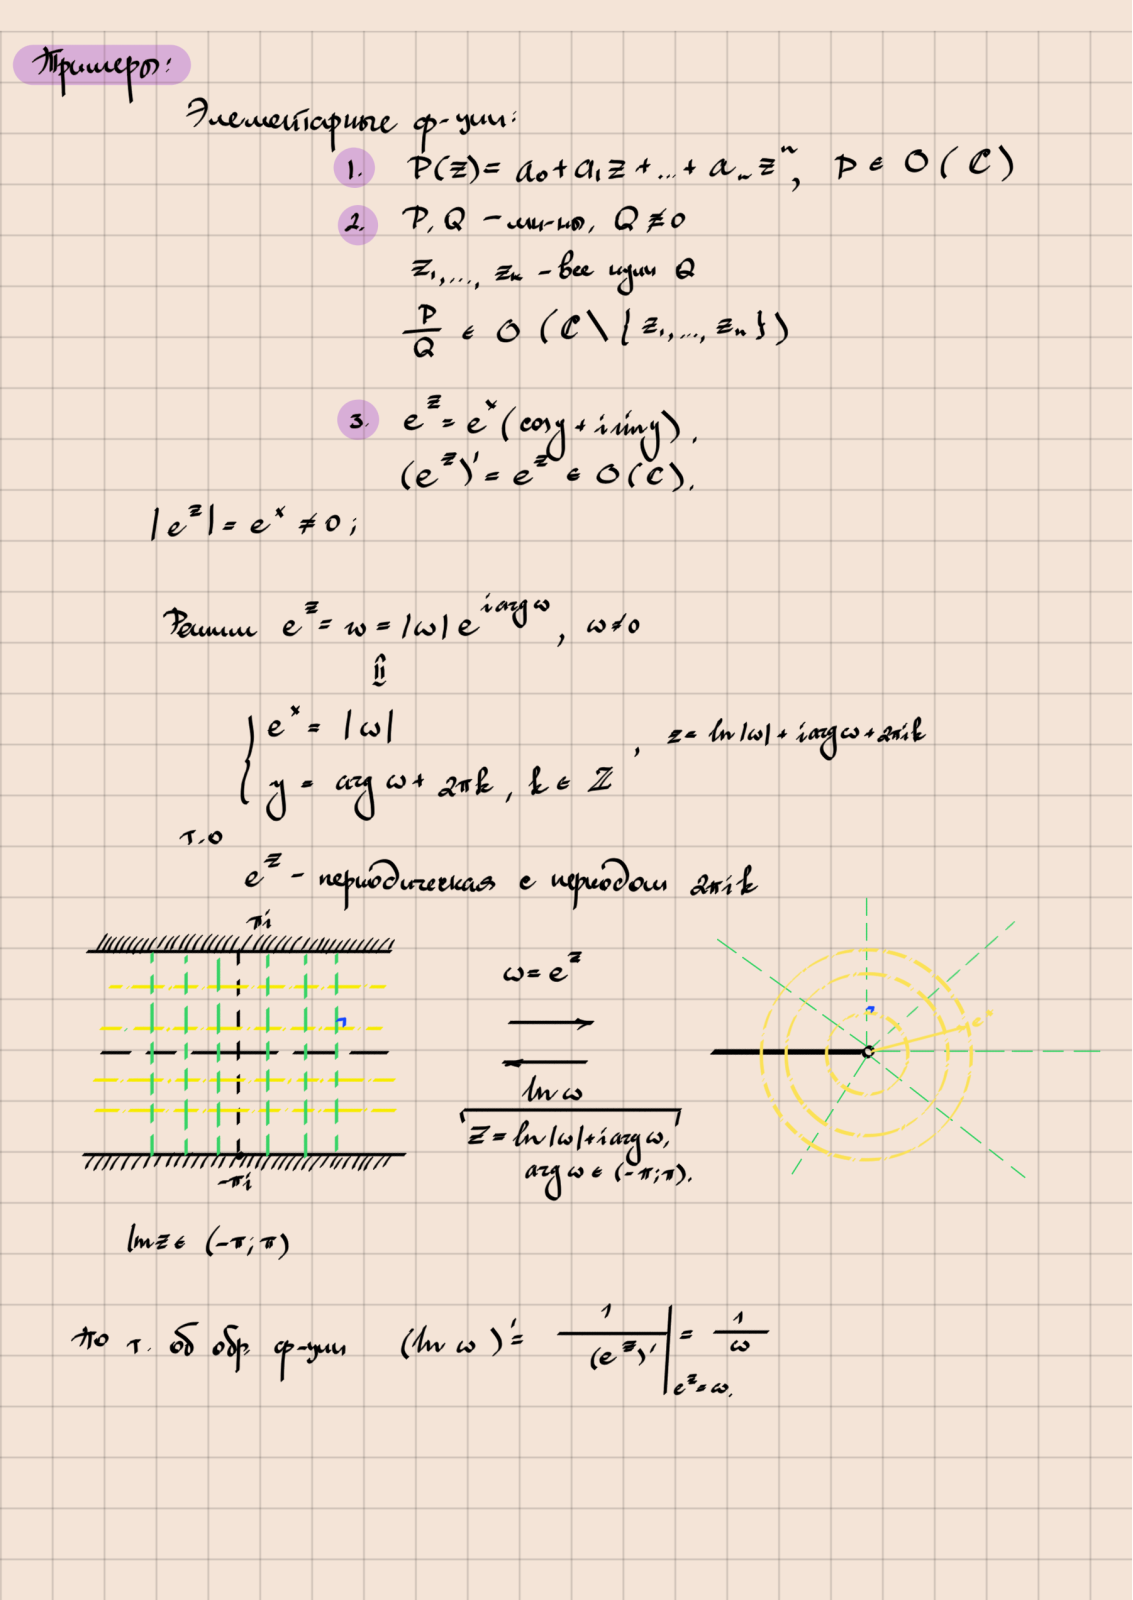 Примеры:
Элементарные ф-ции:
1. P(z) = a₀ + a₁z + ... + aₙzⁿ, P ∈ O(ℂ)
2. P, Q – мн-ны, Q ≢ 0
z₁, ..., zₙ – все нули Q
P/Q ∈ O(ℂ \ {z₁, ..., zₙ})
3. e^z = e^x (cos y + i sin y).
(e^z)' = e^z ∈ O(ℂ).
|e^z| = e^x ≠ 0;
Решим e^z = w = |w| e^{i arg w}, w ≠ 0
⇕
{ e^x = |w|
y = arg w + 2πk, k ∈ ℤ , z = ln|w| + i arg w + 2πik
т.о
e^z – периодическая с периодом 2πik
πi
w = e^z
ln w
z = ln|w| + i arg w,
arg w ∈ (-π; π).
-πi
Im z ∈ (-π; π)
По т. об обр. ф-ции (ln w)' = 1/(e^z)' |_{e^z = w.} = 1/w